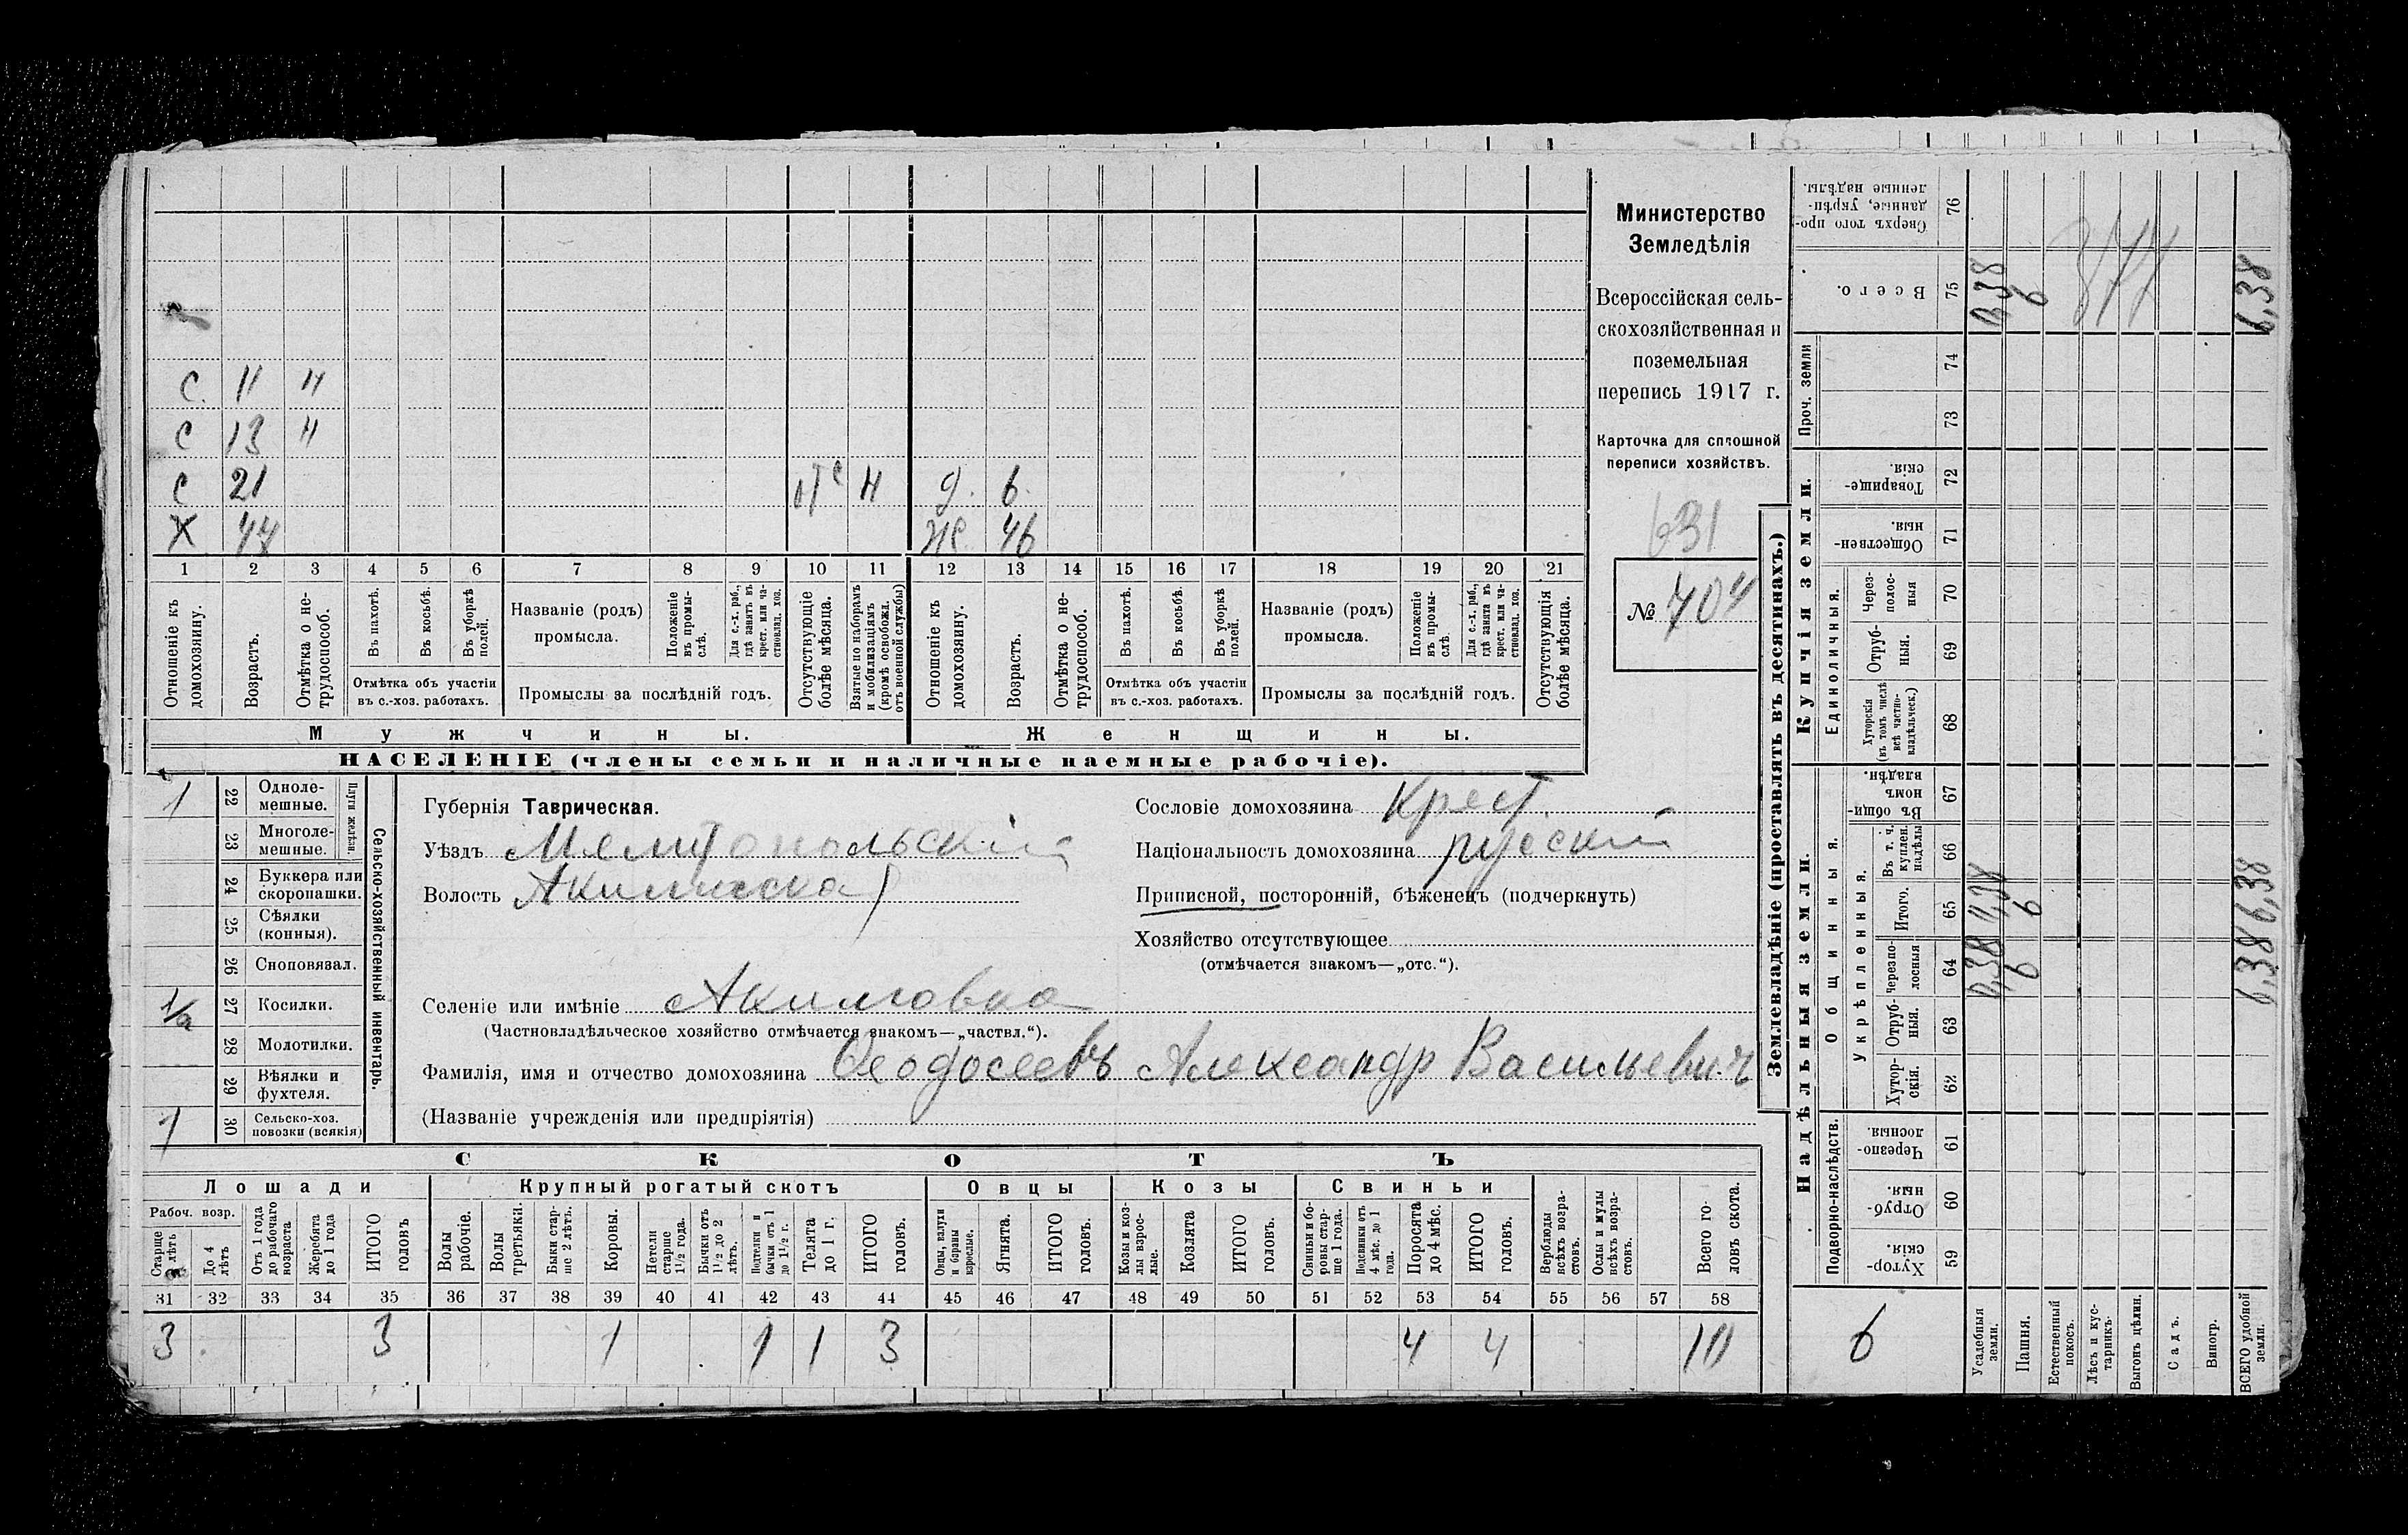 Министерство
Земледѣлія
Всероссійская сель-
скохозяйственная и
поземельная
перепись 1917 г.
Карточка для сплошной
переписи хозяйствъ.
631
№ 704
С. 11 н
С 13 н
С 21 отс н д. 6.
Х 47 Ж. 46
1 2 3 4 5 6 7 8 9 10 11 12 13 14 15 16 17 18 19 20 21
Отношеніе къ домохозяину.
Возрастъ.
Отмѣтка о не-трудоспособ.
Въ пахотѣ.
Въ косьбѣ.
Въ уборкѣ полей.
Отмѣтка объ участіи въ с.-хоз. работахъ.
Названіе (родъ) промысла.
Положеніе въ промы-слѣ.
Для с.-х. раб., гдѣ занятъ въ крест. или ча-стновлад. хоз.
Промыслы за послѣдній годъ.
Отсутствующіе болѣе мѣсяца.
Взятые по наборамъ и мобилизаціямъ (кромѣ освобожд. отъ военной службы)
Отношеніе къ домохозяину.
Возрастъ.
Отмѣтка о не-трудоспособ.
Въ пахотѣ.
Въ косьбѣ.
Въ уборкѣ полей.
Отмѣтка объ участіи въ с.-хоз. работахъ.
Названіе (родъ) промысла.
Положеніе въ промы-слѣ.
Для с.-х. раб., гдѣ занята въ крест. или ча-стновлад. хоз.
Промыслы за послѣдній годъ.
Отсутствующія болѣе мѣсяца.
Мужчины. Женщины.
НАСЕЛЕНІЕ (члены семьи и наличные наемные рабочіе).
Сельско-хозяйственный инвентарь.
Плуги желѣзн.
1 22 Одноле-мешные.
23 Многоле-мешные.
24 Буккера или скоропашки.
25 Сѣялки (конныя).
26 Сноповязал.
1/2 27 Косилки.
28 Молотилки.
29 Вѣялки и фухтеля.
1 30 Сельско-хоз. повозки (всякія)
Губернія Таврическая.
Уѣздъ Мелитопольскій
Волость Акимовская
Сословіе домохозяина Крест
Національность домохозяина русскій
Приписной, посторонній, бѣженецъ (подчеркнуть)
Хозяйство отсутствующее
(отмѣчается знакомъ—„отс.“).
Селеніе или имѣніе Акимовка
(Частновладѣльческое хозяйство отмѣчается знакомъ—„частвл.“).
Фамилія, имя и отчество домохозяина Ѳеодосеевъ Александр Васильевич
(Названіе учрежденія или предпріятія)
СКОТЪ
Лошади Крупный рогатый скотъ Овцы Козы Свиньи
Рабоч. возр.
Старше 4 лѣтъ
До 4 лѣтъ
Отъ 1 года до рабочаго возраста
Жеребята до 1 года
ИТОГО головъ
Волы рабочіе.
Волы третьяки.
Быки стар-ше 2 лѣтъ.
Коровы.
Нетели старше 1½ года.
Бычки отъ 1½ до 2 лѣтъ.
Подтелки и бычки отъ 1 до 1½ г.
Телята до 1 г.
ИТОГО головъ.
Овцы, валухи и бараны взрослые.
Ягнята.
ИТОГО головъ.
Козы и коз-лы взрос-лые.
Козлята
ИТОГО головъ.
Свиньи и бо-ровы стар-ше 1 года.
Подсвинки отъ 4 мѣс. до 1 года.
Поросята до 4 мѣс.
ИТОГО головъ.
Верблюды всѣхъ возра-стовъ.
Ослы и мулы всѣхъ возра-стовъ.
Всего го-ловъ скота.
31 32 33 34 35 36 37 38 39 40 41 42 43 44 45 46 47 48 49 50 51 52 53 54 55 56 57 58
3 3 1 1 1 3 4 4 10
Землевладѣніе (проставлять въ десятинахъ.)
Надѣльныя земли. Купчія земли. Проч. земли
Подворно-наслѣдств. Общинныя. Укрѣпленныя. Единоличныя.
59 Хутор-скія.
60 Отруб-ныя.
61 Черезпо-лосныя.
62 Хутор-скія.
63 Отруб-ныя.
64 Черезпо-лосныя
65 Итого.
66 Въ т. ч. куплен. надѣлы
67 Въ общи-номъ владѣн.
68 Хуторскія (въ томъ числѣ всѣ частно-владѣльческ.)
69 Отруб-ныя.
70 Через-полос-ныя
71 Обществен-ныя.
72 Товарище-скія.
73
74
75 Всего.
76 Сверхъ того про-данные, укрѣп-ленные надѣлы.
6
Усадебныя земли. 0,38 0,38 0,38
Пашня. 6 6 6
Естественный покосъ.
Лѣсъ и кус-тарникъ.
Выгонъ цѣлин.
Садъ.
Виногр.
ВСЕГО удобной земли. 6,38 6,38 6,38